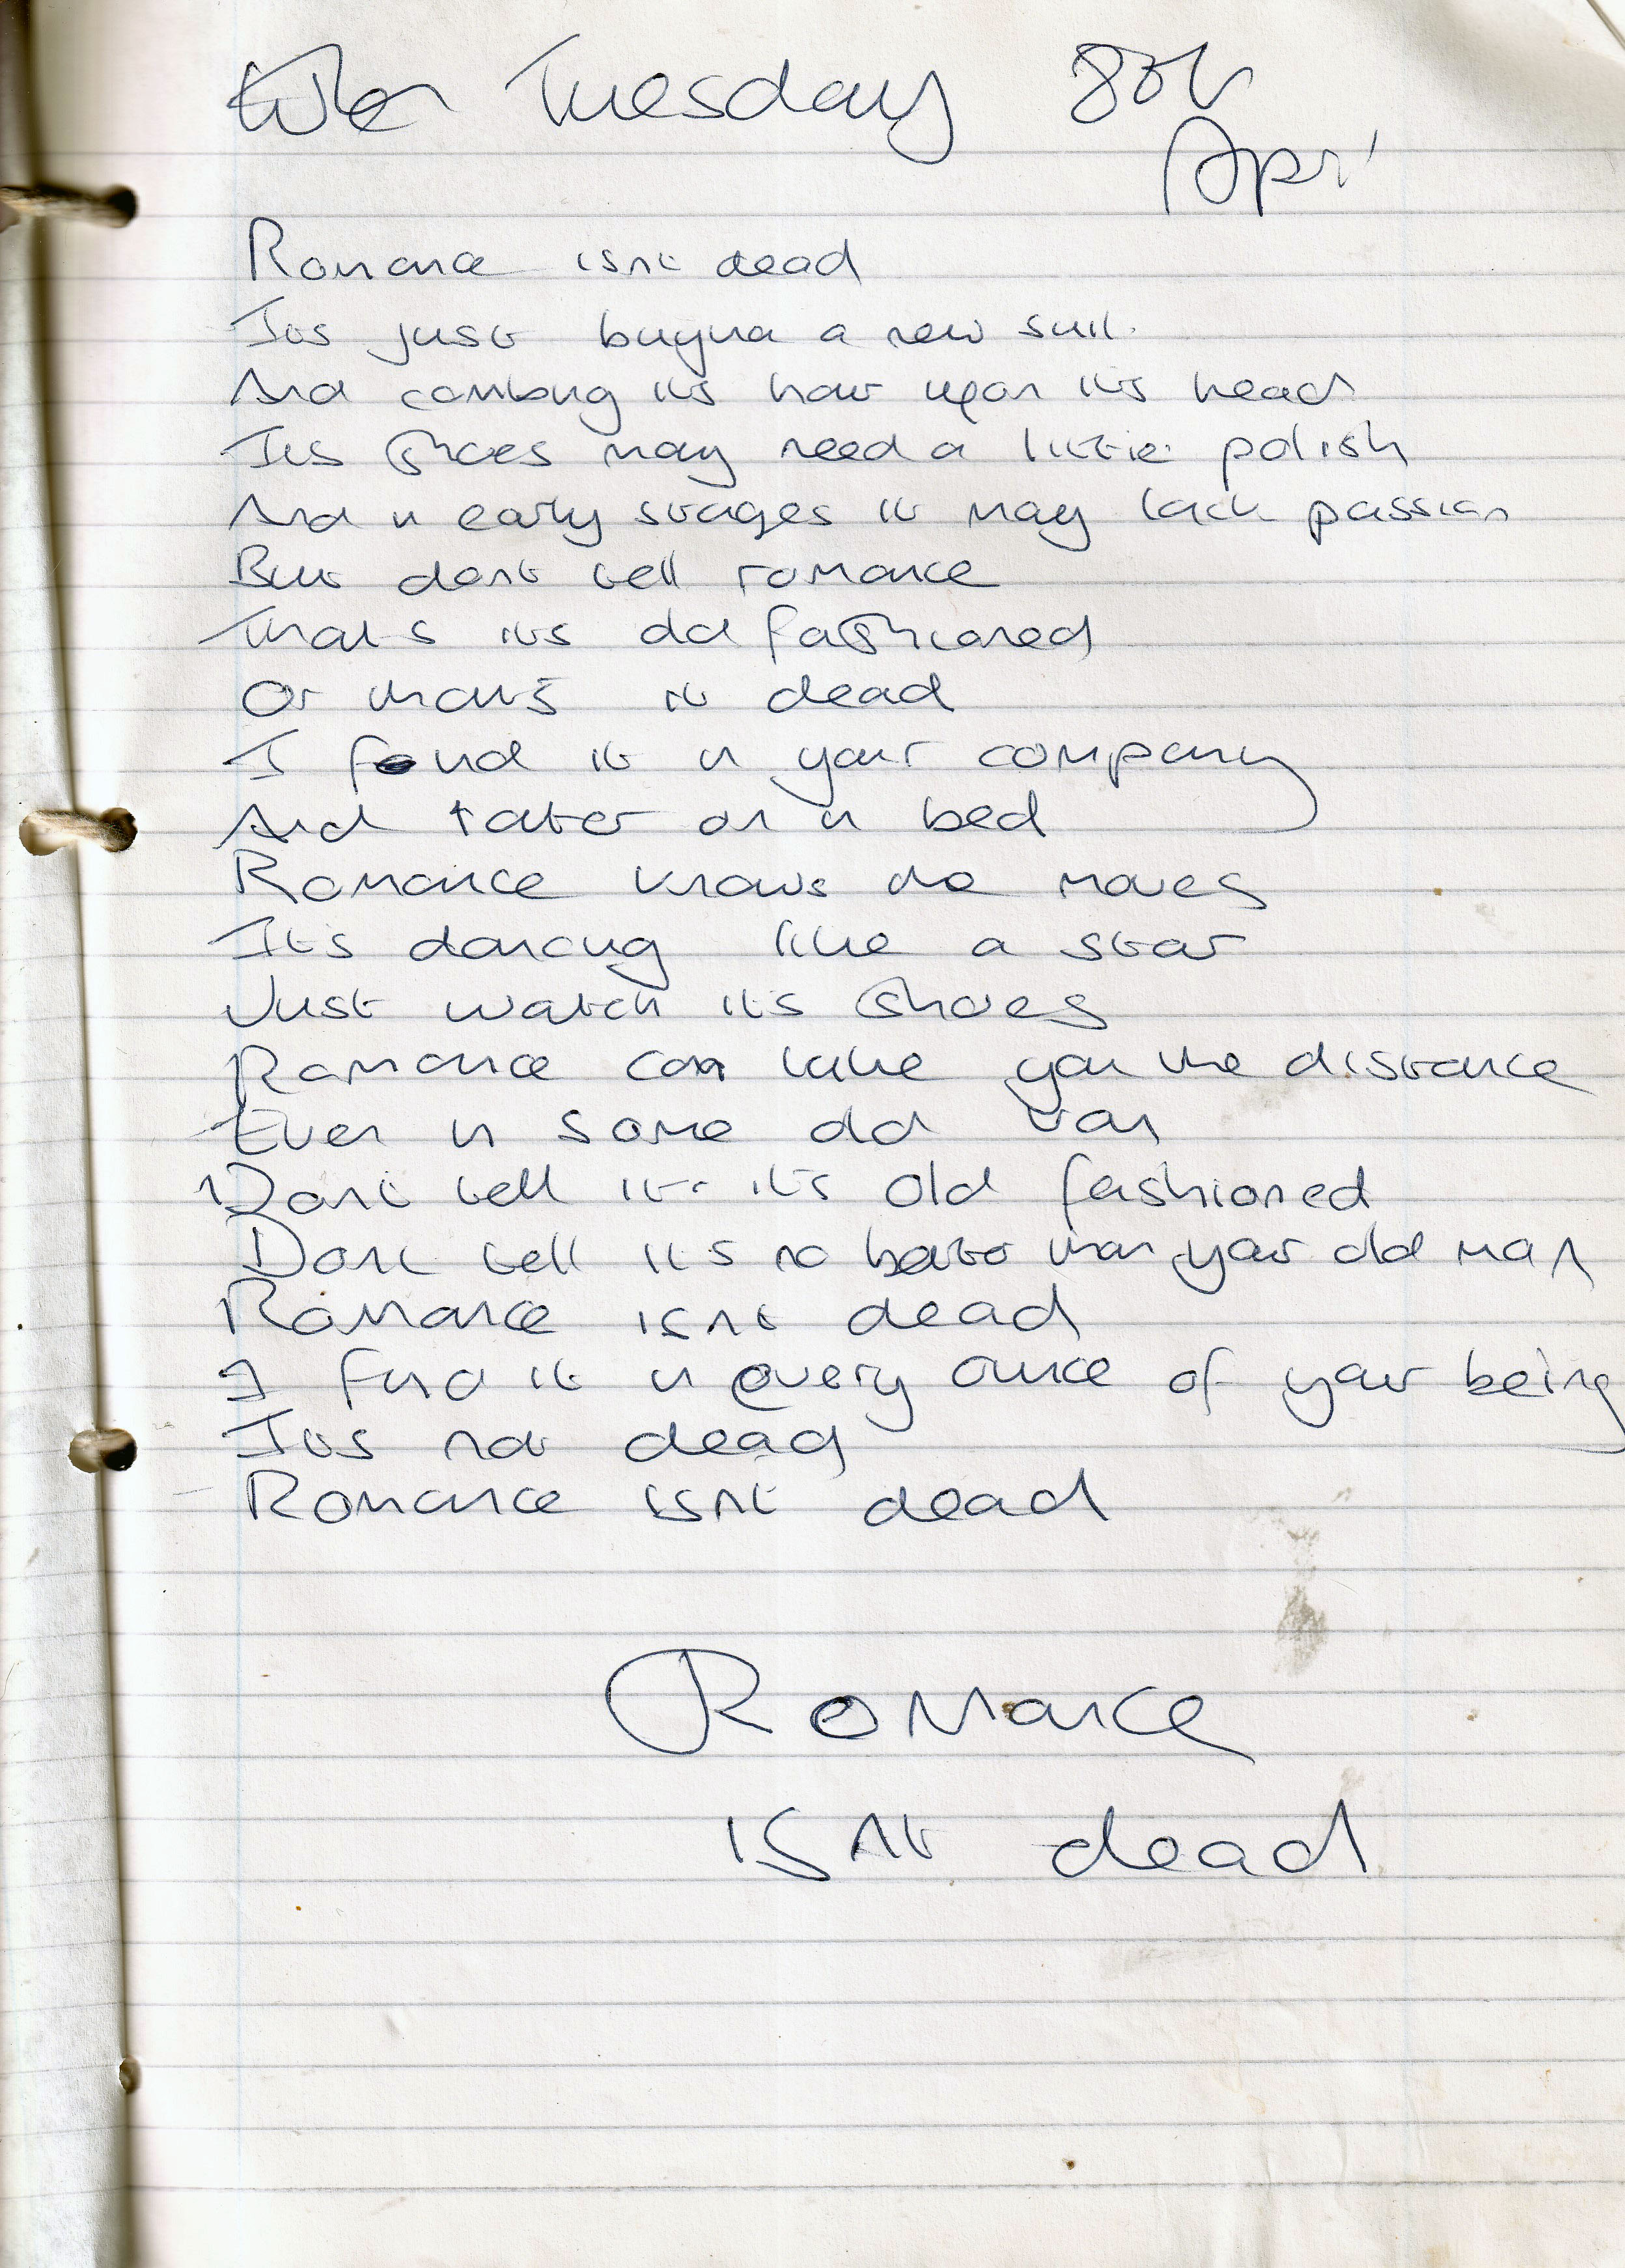 Tuesday 8th
April
Romance isnt dead
Its just buying a new suit.
And combing its hair upon its head
Its shoes may need a little polish
And in early stages it may lack passion
But dont tell romance
That's its old fashioned
Or that's it dead
I found it in your company
And later on in bed
Romance knows the moves
It's dancing like a star
Just watch its shoes
Romance can take you the distance
Even in some old van
Dont tell it it's old fashioned
Dont tell it's no better than your old man
Romance isnt dead
I find it in every ounce of your being
Its not dead
Romance isnt dead
Romance
isnt dead